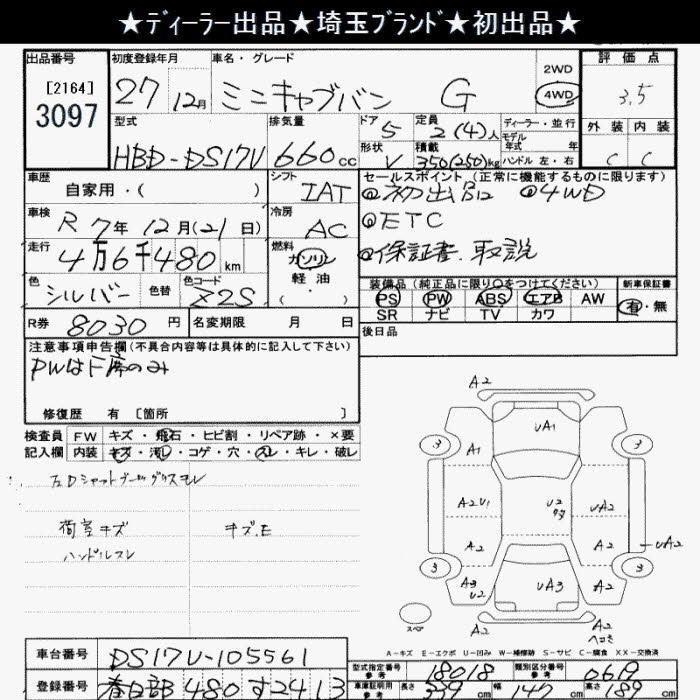 ★ディーラー出品★埼玉ブランド★初出品★
出品番号 初度登録年月 車名・グレード 2WD 評価点
[2164] 27 12月 ミニキャブバン G 4WD 3.5
3097
型式 排気量 ドア 5 定員 2(4)人 ディーラー・並行 外装 内装
モデル年式 年
HBD-DS17V 660cc 形状 V 積載 350(250)kg ハンドル 左・右 C C
車歴 シフト セールスポイント (正常に機能するものに限ります)
自家用・( ) IAT ◎初出品 ◎4WD
車検 R7年12月(21日) 冷房 AC ◎ETC
走行 4万6千480km 燃料 ガソリン・軽油・( ) ◎保証書、取説
色 シルバー 色替 色コード X2S 装備品 (純正品に限り○をつけてください) 新車保証書
PS PW ABS エアB AW 有・無
SR ナビ TV カワ
R券 8030円 名変期限 月 日 後日品
注意事項申告欄(不具合内容等は具体的に記入して下さい)
PWは下席のみ
修復歴 有 [箇所 ]
検査員 FW キズ・飛石・ヒビ割・リペア跡・×要
記入欄 内装 キズ・汚レ・コゲ・穴・スレ・キレ・破レ
荷室キズ キズ.E
ハンドルスレ
A2
UA1
3 3
A1
A2U1 U2 UA2
A2 A2 UA2
3 3
A3 U2 UA3 A2
スペア A2 A2
ヘコミ
A-キズ E-エクボ U-凹み W-補修跡 S-サビ C-腐食 XX-交換済
車台番号 DS17V-105561
型式指定番号 参考 18018 類別区分番号 参考 0619
登録番号 春日部480す2413 車庫証明用 参考 長さ 339cm 幅 147cm 高さ 189cm